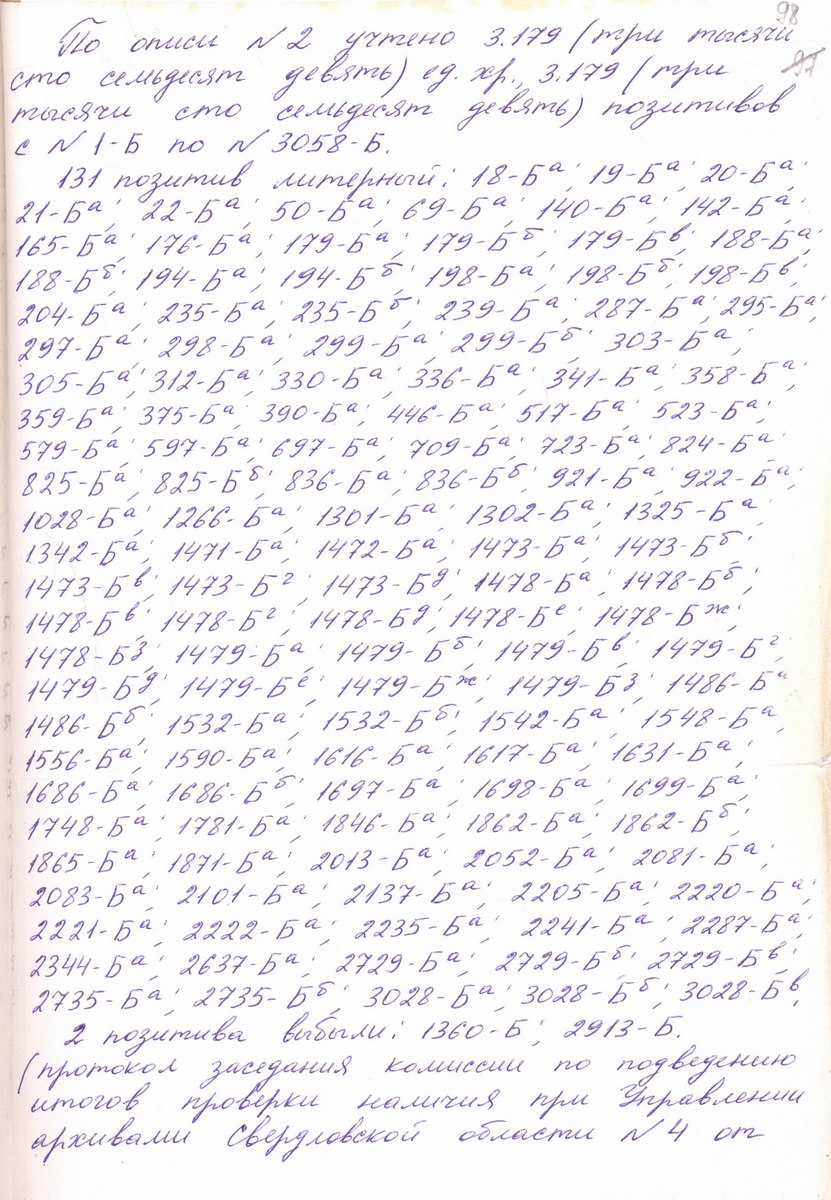 98
97
По описи N 2 учтено 3.179 (три тысячи
сто семьдесят девять) ед. хр., 3.179 (три
тысячи сто семьдесят девять) позитивов
с N 1-Б по N 3058-Б.
131 позитив литерный: 18-Бᵃ; 19-Бᵃ; 20-Бᵃ;
21-Бᵃ; 22-Бᵃ; 50-Бᵃ; 69-Бᵃ; 140-Бᵃ; 142-Бᵃ;
165-Бᵃ; 176-Бᵃ; 179-Бᵃ; 179-Бб; 179-Бв; 188-Бᵃ;
188-Бб; 194-Бᵃ; 194-Бб; 198-Бᵃ; 198-Бб; 198-Бв;
204-Бᵃ; 235-Бᵃ; 235-Бб; 239-Бᵃ; 287-Бᵃ; 295-Бᵃ;
297-Бᵃ; 298-Бᵃ; 299-Бᵃ; 299-Бб; 303-Бᵃ;
305-Бᵃ; 312-Бᵃ; 330-Бᵃ; 336-Бᵃ; 341-Бᵃ; 358-Бᵃ;
359-Бᵃ; 375-Бᵃ; 390-Бᵃ; 446-Бᵃ; 517-Бᵃ; 523-Бᵃ;
579-Бᵃ; 597-Бᵃ; 697-Бᵃ; 709-Бᵃ; 723-Бᵃ; 824-Бᵃ
825-Бᵃ; 825-Бб; 836-Бᵃ; 836-Бб; 921-Бᵃ; 922-Бᵃ;
1028-Бᵃ; 1266-Бᵃ; 1301-Бᵃ; 1302-Бᵃ; 1325-Бᵃ;
1342-Бᵃ; 1471-Бᵃ; 1472-Бᵃ; 1473-Бᵃ; 1473-Бб;
1473-Бв; 1473-Бг; 1473-Бд; 1478-Бᵃ; 1478-Бб;
1478-Бв; 1478-Бг; 1478-Бд; 1478-Бе; 1478-Бж;
1478-Бз; 1479-Бᵃ; 1479-Бб; 1479-Бв; 1479-Бг;
1479-Бд; 1479-Бе; 1479-Бж; 1479-Бз; 1486-Бᵃ
1486-Бб; 1532-Бᵃ; 1532-Бб; 1542-Бᵃ; 1548-Бᵃ;
1556-Бᵃ; 1590-Бᵃ; 1616-Бᵃ; 1617-Бᵃ; 1631-Бᵃ;
1686-Бᵃ; 1686-Бб; 1697-Бᵃ; 1698-Бᵃ; 1699-Бᵃ;
1748-Бᵃ; 1781-Бᵃ; 1846-Бᵃ; 1862-Бᵃ; 1862-Бб;
1865-Бᵃ; 1871-Бᵃ; 2013-Бᵃ; 2052-Бᵃ; 2081-Бᵃ;
2083-Бᵃ; 2101-Бᵃ; 2137-Бᵃ; 2205-Бᵃ; 2220-Бᵃ;
2221-Бᵃ; 2222-Бᵃ; 2235-Бᵃ; 2241-Бᵃ; 2287-Бᵃ;
2344-Бᵃ; 2637-Бᵃ; 2729-Бᵃ; 2729-Бб; 2729-Бв;
2735-Бᵃ; 2735-Бб; 3028-Бᵃ; 3028-Бб; 3028-Бв.
2 позитива выбыли: 1360-Б; 2913-Б.
(протокол заседания комиссии по подведению
итогов проверки наличия при Управлении
архивами Свердловской области N 4 от